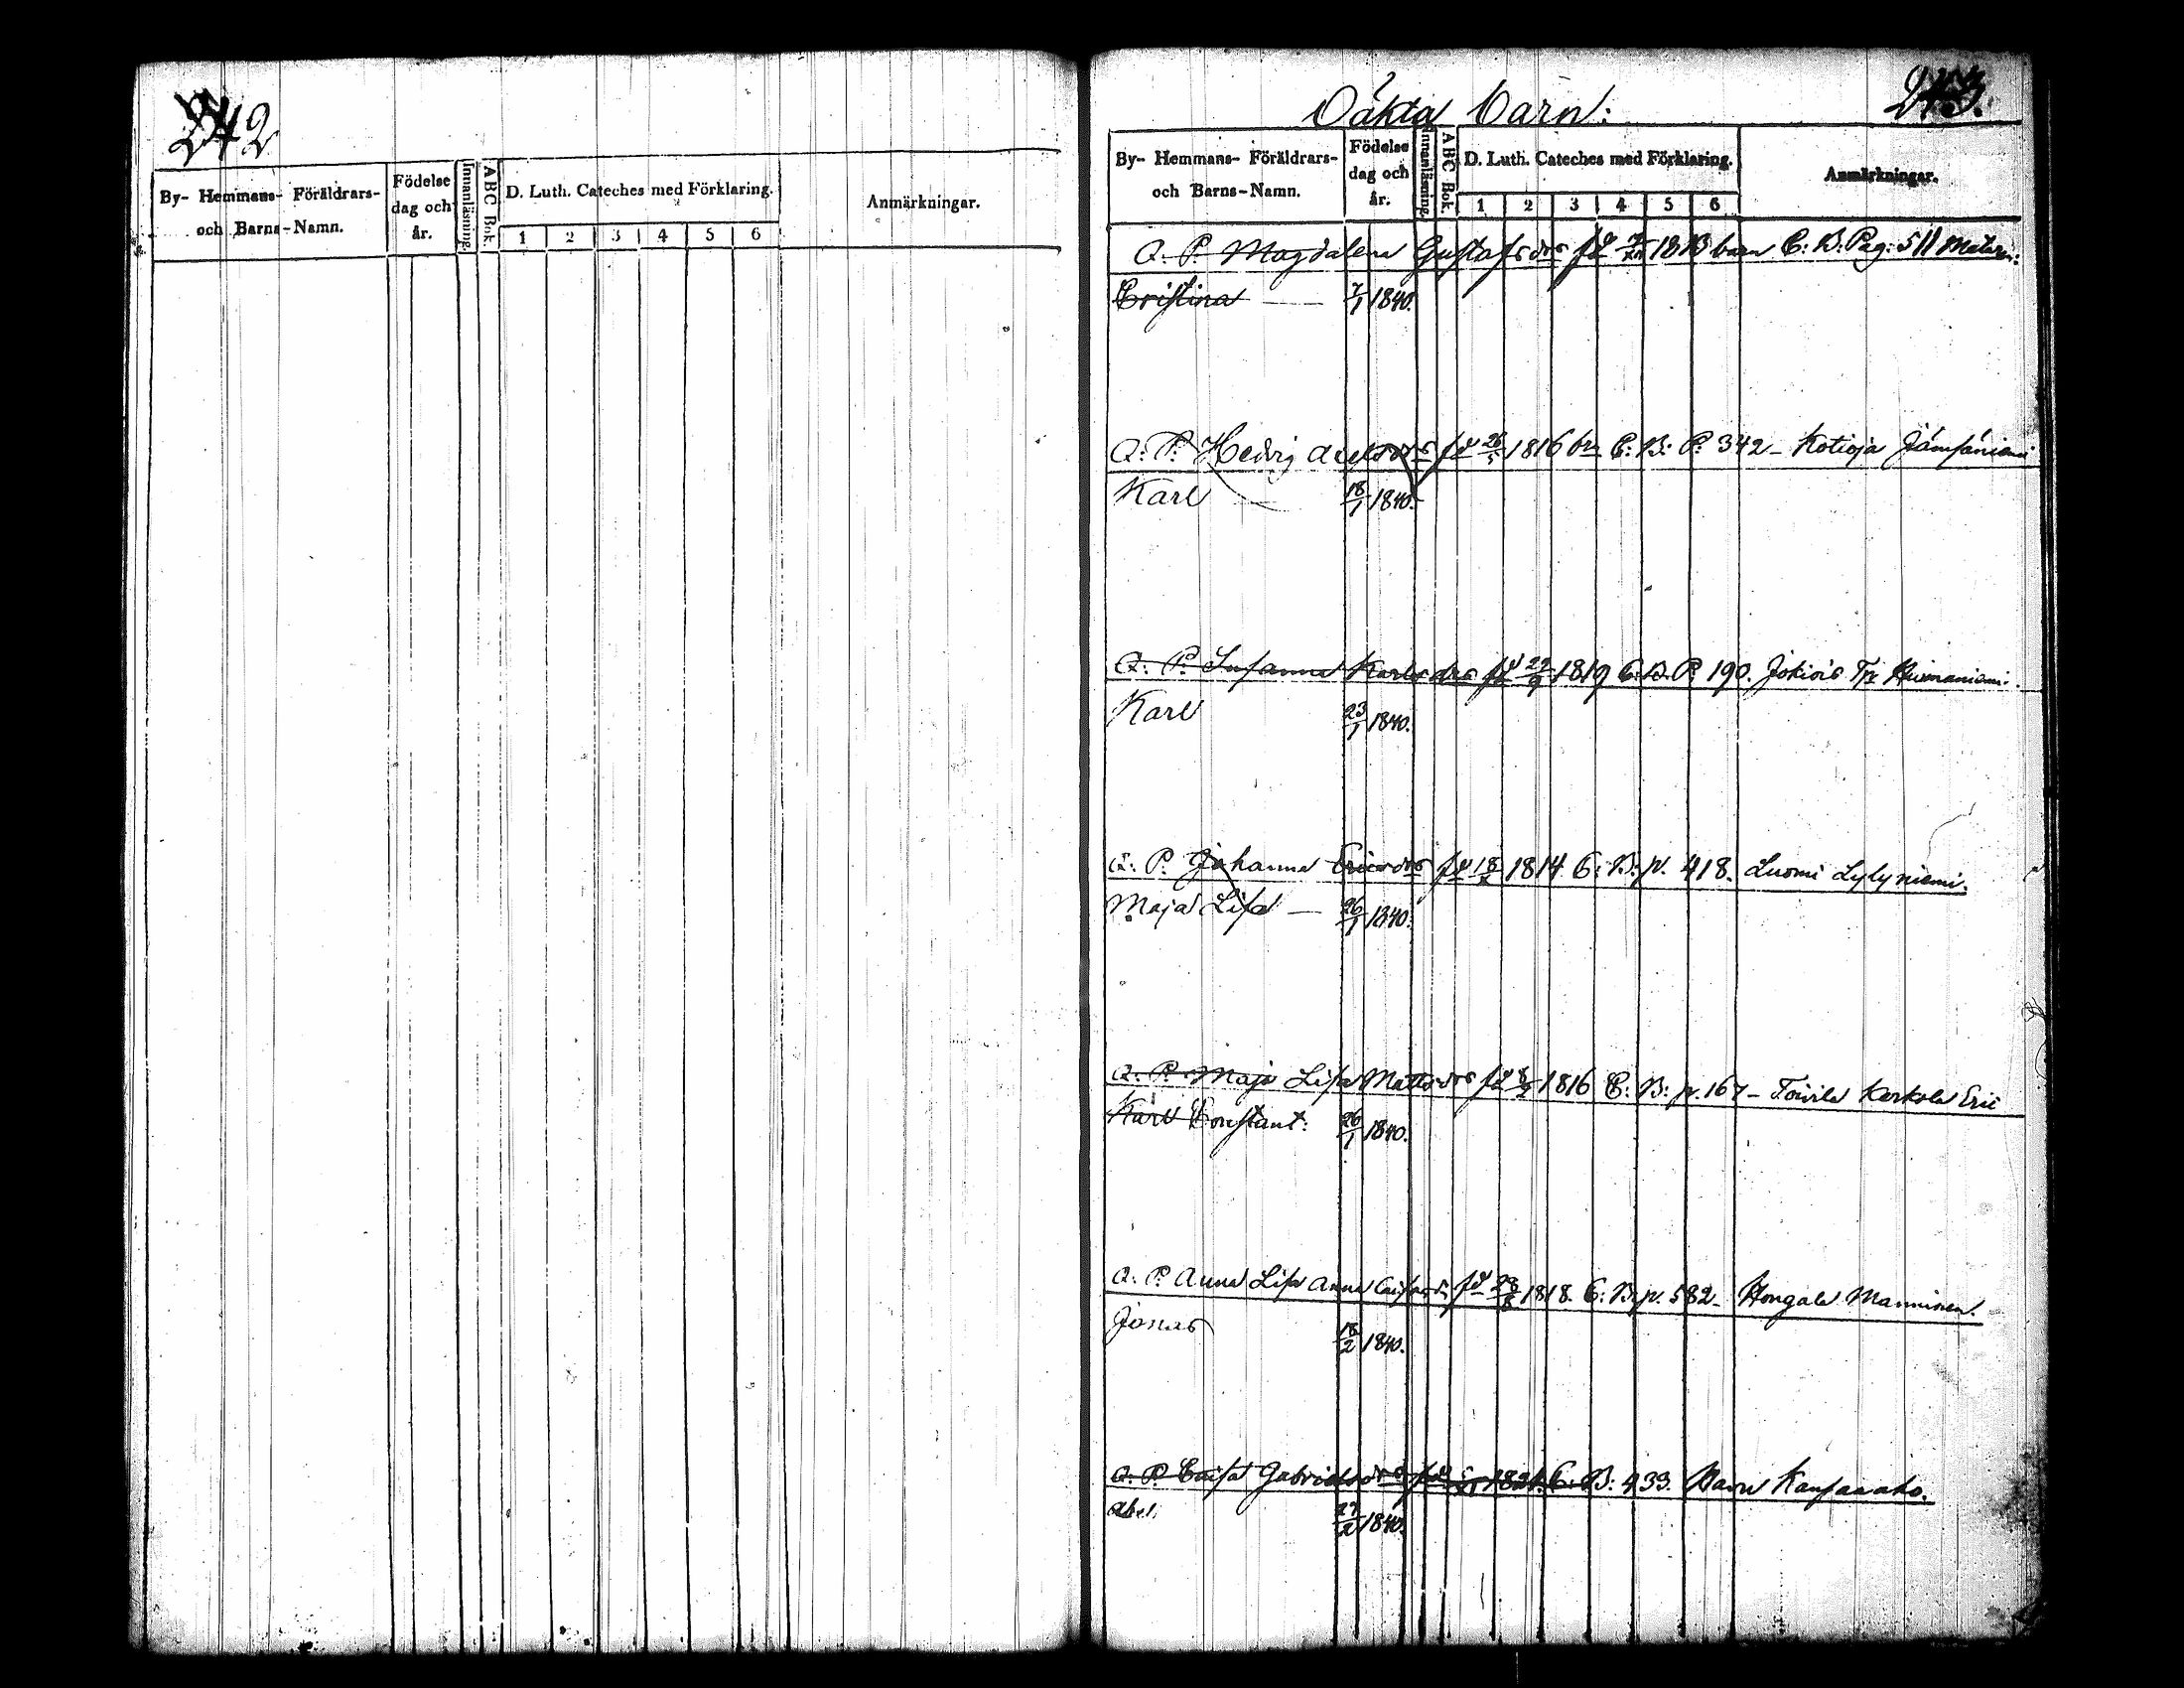 242
By- Hemmans- Föräldrars- och Barns-Namn.
Födelse dag och år.
Innanläsning.
ABC Bok.
D. Luth. Cateches med Förklaring.
1 2 3 4 5 6
Anmärkningar.
243.
Oäkta Barn:
By- Hemmans- Föräldrars- och Barns-Namn.
Födelse dag och år.
Innanläsning.
ABC Bok.
D. Luth. Cateches med Förklaring.
1 2 3 4 5 6
Anmärkningar.
Q. P. Magdalena Gustafsdr fd 1813 barn C: B: Pag: 511
Cristina 7/1 1840.
Q: P: Hedvig Axelsdr fd 26/5 1816 br C: B: P. 342 - Kotioja Jämsäniemi
Karl 18/1 1840.
Q: P: Susanna Karlsdr fd 29/9 1819 C: B. P. 190. Jokiois Tp
Karl 23/1 1840.
Q: P. Johanna Ericsdr fd 18 1814 C: B: p. 418. Luomi Lylyniemi.
Maja Lisa 26/1 1840.
Q: P. Maja Lisa Mattsdr fd 1816 C: B: p. 167 - Kerkola Eric
Karl Constant: 26/1 1840.
Q: P. Anna Lisa Anna fd 28/8 1818. C: B. p. 582 - Hongala Manninen.
Jonas 18/2 1840.
Q: P. Caisa Gabrielsdr fd 1821. C: B: 433.
Abel. 27/2 1840.